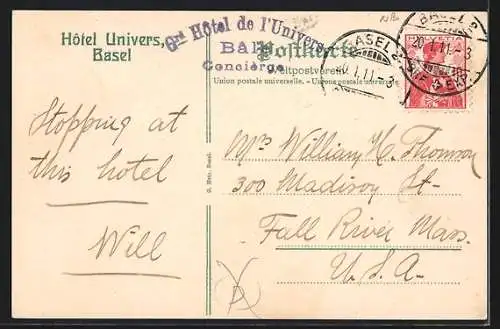 Hôtel Univers,
Basel
Grd Hôtel de l'Univers
BÂLE
Concierge
Postkarte
Weltpostverein
Union postale universelle. - Unione postale universale
BASEL 2
20.I.11.-3
BASEL 2
20.I.11.-3
HELVETIA
Stopping at
this hotel
Will
Mrs William H. Thomson
300 Madison St-
Fall River Mass.
U.S.A-